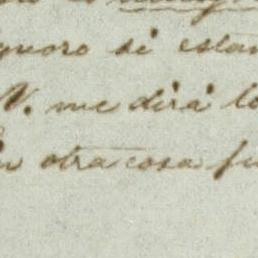 ignoro si estan
V. me dirá lo
En otra cosa fu